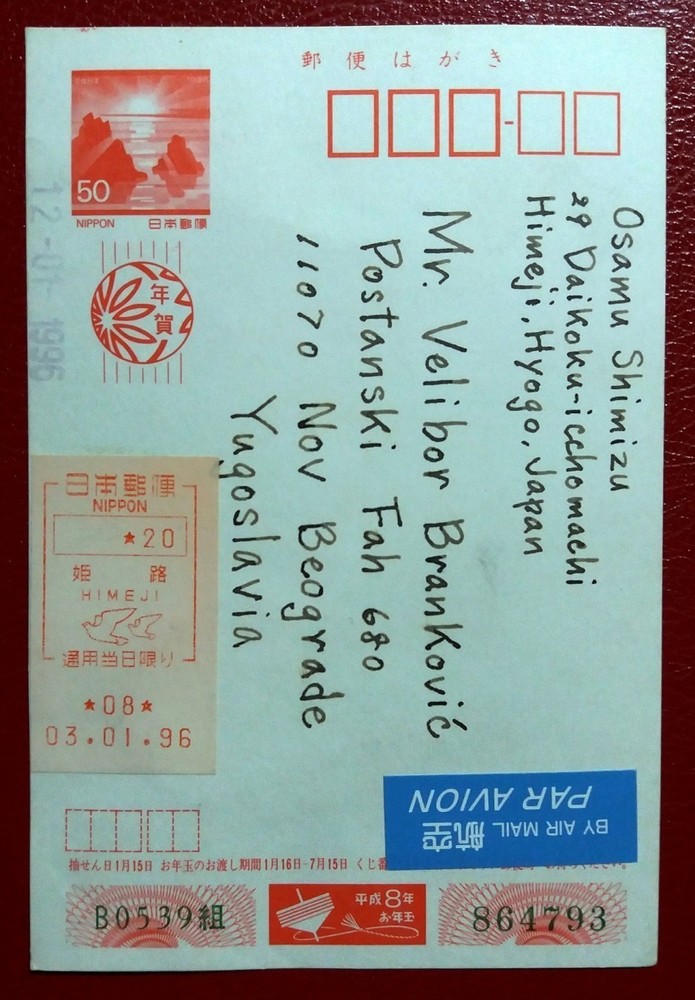 郵便はがき
50
NIPPON 日本郵便
年賀
12-01-1996
Osamu Shimizu
29 Daikoku-icchomachi
Himeji, Hyogo, Japan
Mr. Velibor Branković
Postanski Fah 680
11070 Nov Beograde
Yugoslavia
日本郵便
NIPPON
★20
姫路
HIMEJI
通用当日限り
★08★
03.01.96
BY AIR MAIL 航空
PAR AVION
抽せん日1月15日 お年玉のお渡し期間1月16日-7月15日 くじ番
B0539組
平成8年
お年玉
864793